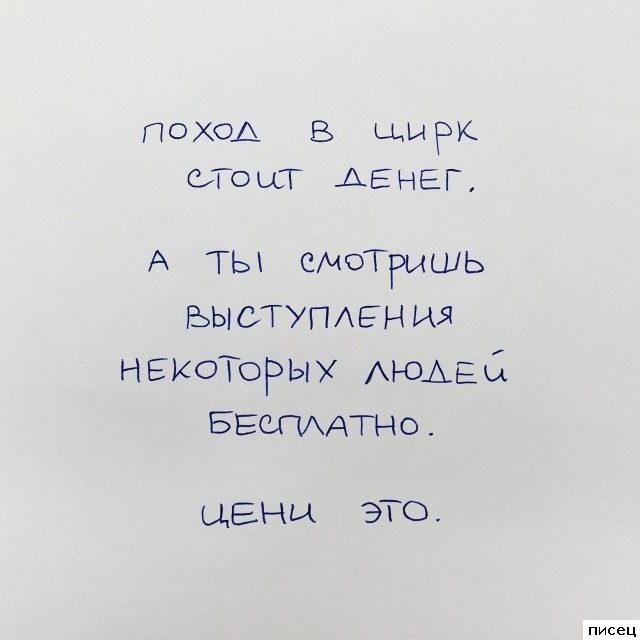 ПОХОД В ЦИРК
СТОИТ ДЕНЕГ.
А ТЫ СМОТРИШЬ
ВЫСТУПЛЕНИЯ
НЕКОТОРЫХ ЛЮДЕЙ
БЕСПЛАТНО.
ЦЕНИ ЭТО.
писец